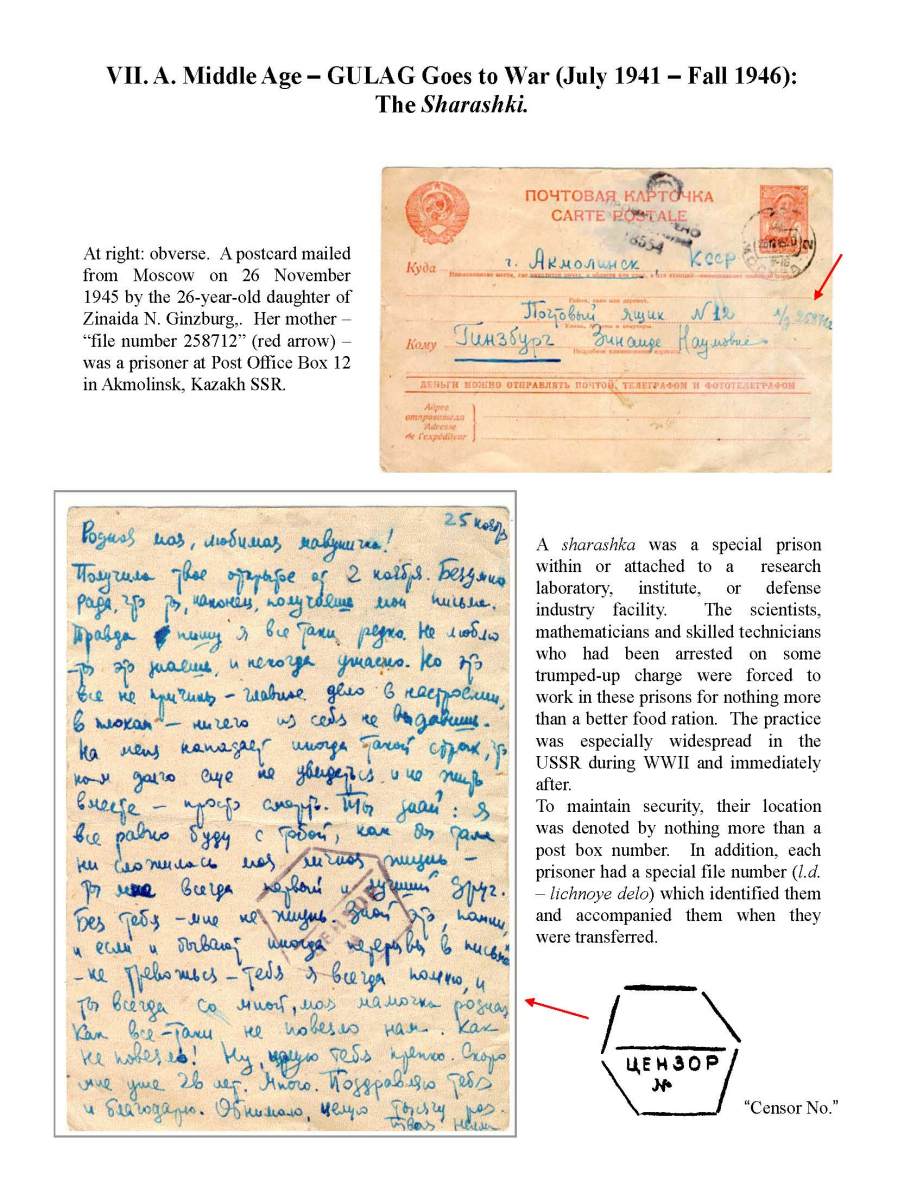 VII. A. Middle Age – GULAG Goes to War (July 1941 – Fall 1946):
The Sharashki.
At right: obverse. A postcard mailed
from Moscow on 26 November
1945 by the 26-year-old daughter of
Zinaida N. Ginzburg,. Her mother –
“file number 258712” (red arrow) –
was a prisoner at Post Office Box 12
in Akmolinsk, Kazakh SSR.
ПОЧТОВАЯ КАРТОЧКА
CARTE POSTALE
Куда г. Акмолинск КССР
Почтовый ящик N 12
Кому Гинзбург Зинаиде Наумовне
ДЕНЬГИ МОЖНО ОТПРАВЛЯТЬ ПОЧТОЙ, ТЕЛЕГРАФОМ И ФОТОТЕЛЕГРАФОМ
Адрес
отправителя
Adresse
de l'expéditeur
25 ноября
Родная моя, любимая мамуничка!
Получила твое открытое от 2 ноября. Безумно
рада, что ты, наконец, получаешь мои письма.
Правда пишу я все таки редко. Не люблю
ты это знаешь, и некогда ужасно. Но это
все не причины – главное дело в настроении,
в плохом – ничего из себя не выдавишь.
На меня нападает иногда такой страх, что
нам долго еще не увидеться и не жить
вместе – просто смерть. Ты знай: я
все равно буду с тобой, как бы там
ни сложилась моя личная жизнь –
ты мне всегда первый и лучший друг.
Без тебя – мне не жизнь. Знай это, помни,
и если и бывают иногда перерывы в письмах
– не тревожься – тебя я всегда помню, и
ты всегда со мной, моя мамочка родная.
Как все-таки не повезло нам. Как
не повезло! Ну, целую тебя крепко. Скоро
мне уже 26 лет. Много. Поздравляю тебя
и благодарю. Обнимаю, целую тысячу раз.
Твоя
A sharashka was a special prison
within or attached to a research
laboratory, institute, or defense
industry facility. The scientists,
mathematicians and skilled technicians
who had been arrested on some
trumped-up charge were forced to
work in these prisons for nothing more
than a better food ration. The practice
was especially widespread in the
USSR during WWII and immediately
after.
To maintain security, their location
was denoted by nothing more than a
post box number. In addition, each
prisoner had a special file number (l.d.
– lichnoye delo) which identified them
and accompanied them when they
were transferred.
ЦЕНЗОР
№
“Censor No.”